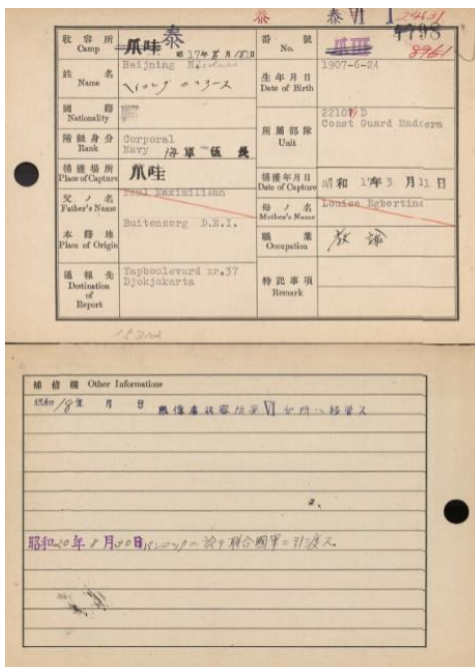 泰 泰 VI I
收容所 Camp 爪哇 泰 昭17年8月15日
番號 No. 爪III 4798 8961
姓名 Name Heijning
ヘイニング
生年月日 Date of Birth 1907-6-24
國籍 Nationality
所屬部隊 Unit Coast Guard Madoera
階級身分 Rank Corporal Navy 海軍伍長
捕獲場所 Place of Capture 爪哇
捕獲年月日 Date of Capture 昭和17年3月11日
父ノ名 Father's Name Paul Maximiliaan
母ノ名 Mother's Name Louise Egbertine
本籍地 Place of Origin Buitenzorg D.E.I.
職業 Occupation 教諭
通報先 Destination of Report Yapboulevard nr.37 Djokjakarta
特記事項 Remark
補修欄 Other Informations
昭和18年 月 日 馬俘虜收容所第VI分所ヘ移管ス
昭和20年8月30日バンコックニ於テ聯合國軍ニ引渡ス